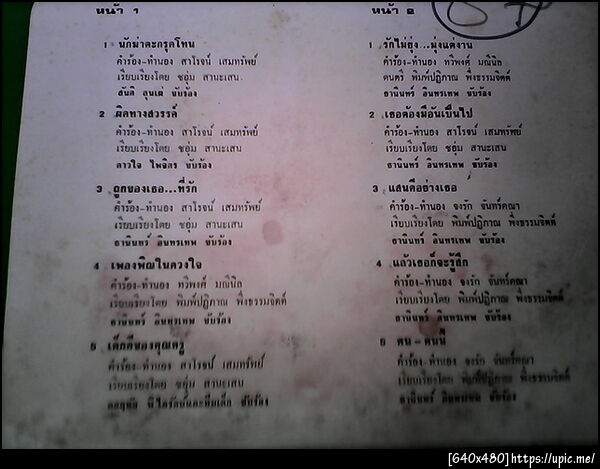 หน้า 1
1 นักฆ่าตะกรุดโทน
คำร้อง-ทำนอง สาโรจน์ เสมทรัพย์
เรียบเรียงโดย ชอุ่ม สานะเสน
สันติ ลุนเผ่ ขับร้อง
2 ผิดทางสวรรค์
คำร้อง-ทำนอง สาโรจน์ เสมทรัพย์
เรียบเรียงโดย ชอุ่ม สานะเสน
ดาวใจ ไพจิตร ขับร้อง
3 ถูกของเธอ...ที่รัก
คำร้อง-ทำนอง สาโรจน์ เสมทรัพย์
เรียบเรียงโดย ชอุ่ม สานะเสน
ธานินทร์ อินทรเทพ ขับร้อง
4 เพลงพิณในดวงใจ
คำร้อง-ทำนอง ทวีพงศ์ มณีนิล
เรียบเรียงโดย พิมพ์ปฏิภาณ พึ่งธรรมจิตต์
ธานินทร์ อินทรเทพ ขับร้อง
5 เด็กดีของคุณครู
คำร้อง-ทำนอง สาโรจน์ เสมทรัพย์
เรียบเรียงโดย ชอุ่ม สานะเสน
ขับร้อง
หน้า 2
1 รักไม่ยุ่ง...มุ่งแต่งาน
คำร้อง-ทำนอง ทวีพงศ์ มณีนิล
ดนตรี พิมพ์ปฏิภาณ พึ่งธรรมจิตต์
ธานินทร์ อินทรเทพ ขับร้อง
2 เธอต้องมีอันเป็นไป
คำร้อง-ทำนอง สาโรจน์ เสมทรัพย์
เรียบเรียงโดย ชอุ่ม สานะเสน
ธานินทร์ อินทรเทพ ขับร้อง
3 แสนดีอย่างเธอ
คำร้อง-ทำนอง จงรัก จันทร์คณา
เรียบเรียงโดย พิมพ์ปฏิภาณ พึ่งธรรมจิตต์
ธานินทร์ อินทรเทพ ขับร้อง
4 แล้วเธอก็จะรู้สึก
คำร้อง-ทำนอง จงรัก จันทร์คณา
เรียบเรียงโดย พิมพ์ปฏิภาณ พึ่งธรรมจิตต์
ธานินทร์ อินทรเทพ ขับร้อง
5 คน-คนนี้
คำร้อง-ทำนอง จงรัก จันทร์คณา
เรียบเรียงโดย พิมพ์ปฏิภาณ พึ่งธรรมจิตต์
ธานินทร์ อินทรเทพ ขับร้อง
[640x480]https://upic.me/